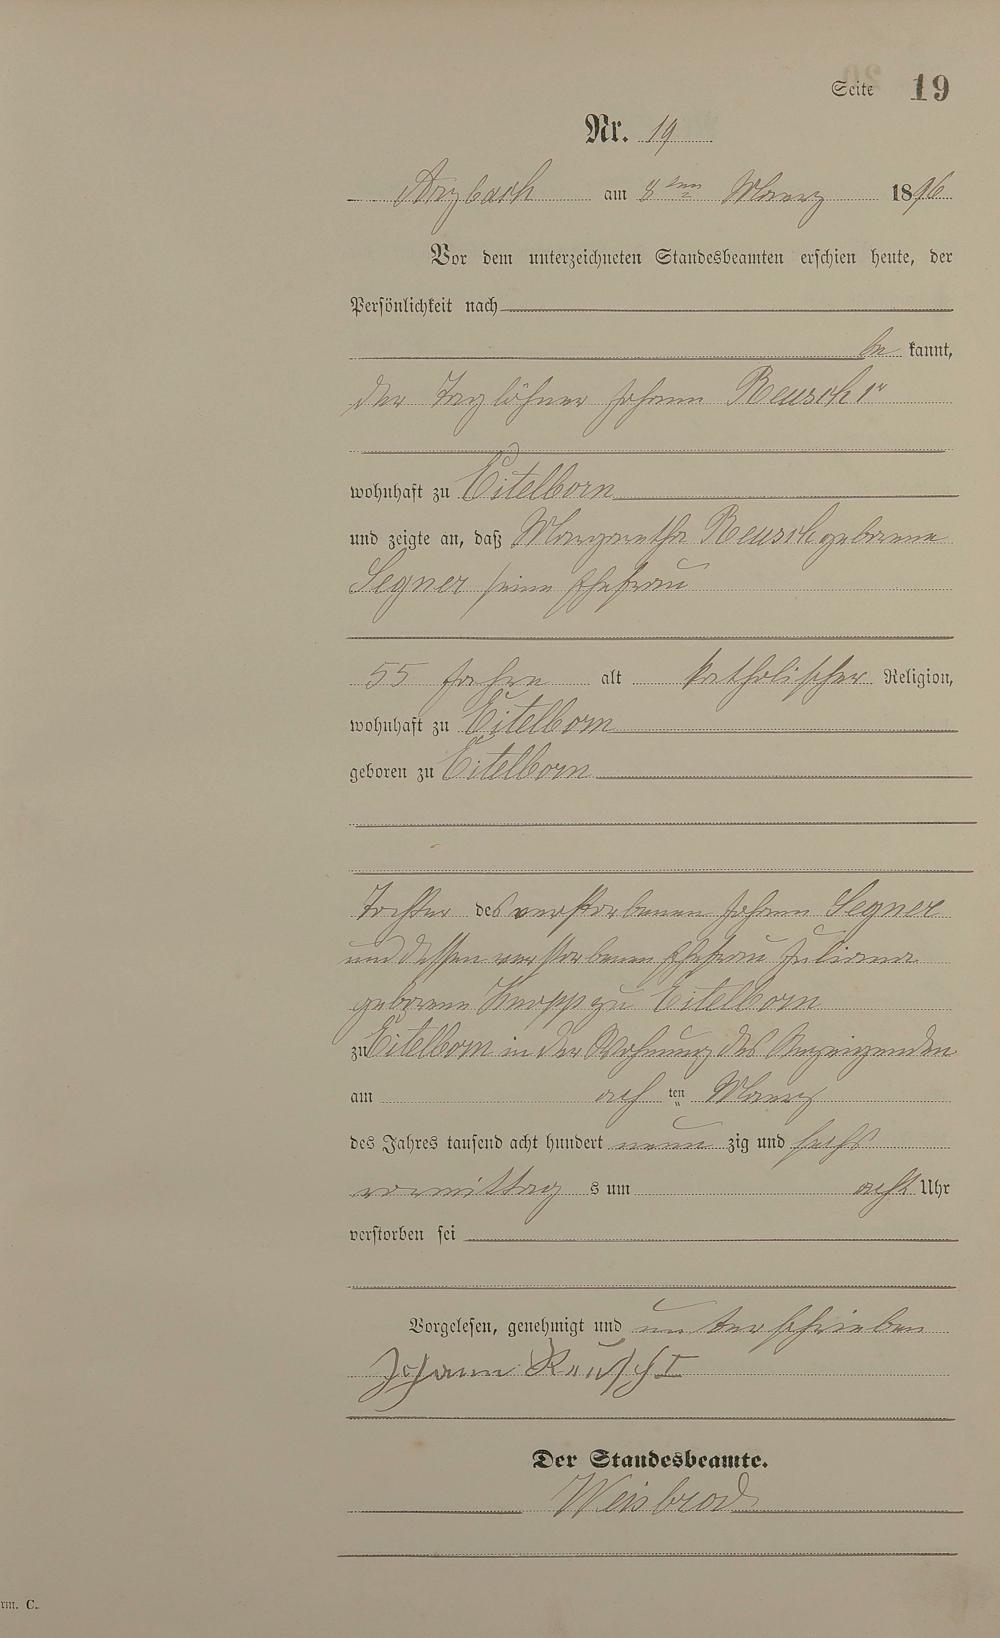 Seite 19
Nr. 19
Arzbach am 8ten Maerz 1896
Vor dem unterzeichneten Standesbeamten erschien heute, der
Persönlichkeit nach
be kannt,
der Taglöhner Johann Reusch 1r
wohnhaft zu Eitelborn
und zeigte an, daß Margaretha Reusch geborene
Segner seine Ehefrau
55 Jahre alt katholischer Religion,
wohnhaft zu Eitelborn
geboren zu Eitelborn
Tochter des verstorbenen Johann Segner
und dessen verstorbenen Ehefrau Juliana
geborene Knopp zu Eitelborn
zu Eitelborn in der Wohnung des Anzeigenden
am ach ten Maerz
des Jahres tausend acht hundert neun zig und sechs
vormittag s um acht Uhr
verstorben sei
Vorgelesen, genehmigt und unterschrieben
Johann Reusch I
Der Standesbeamte.
Weisbrod
rm. C.